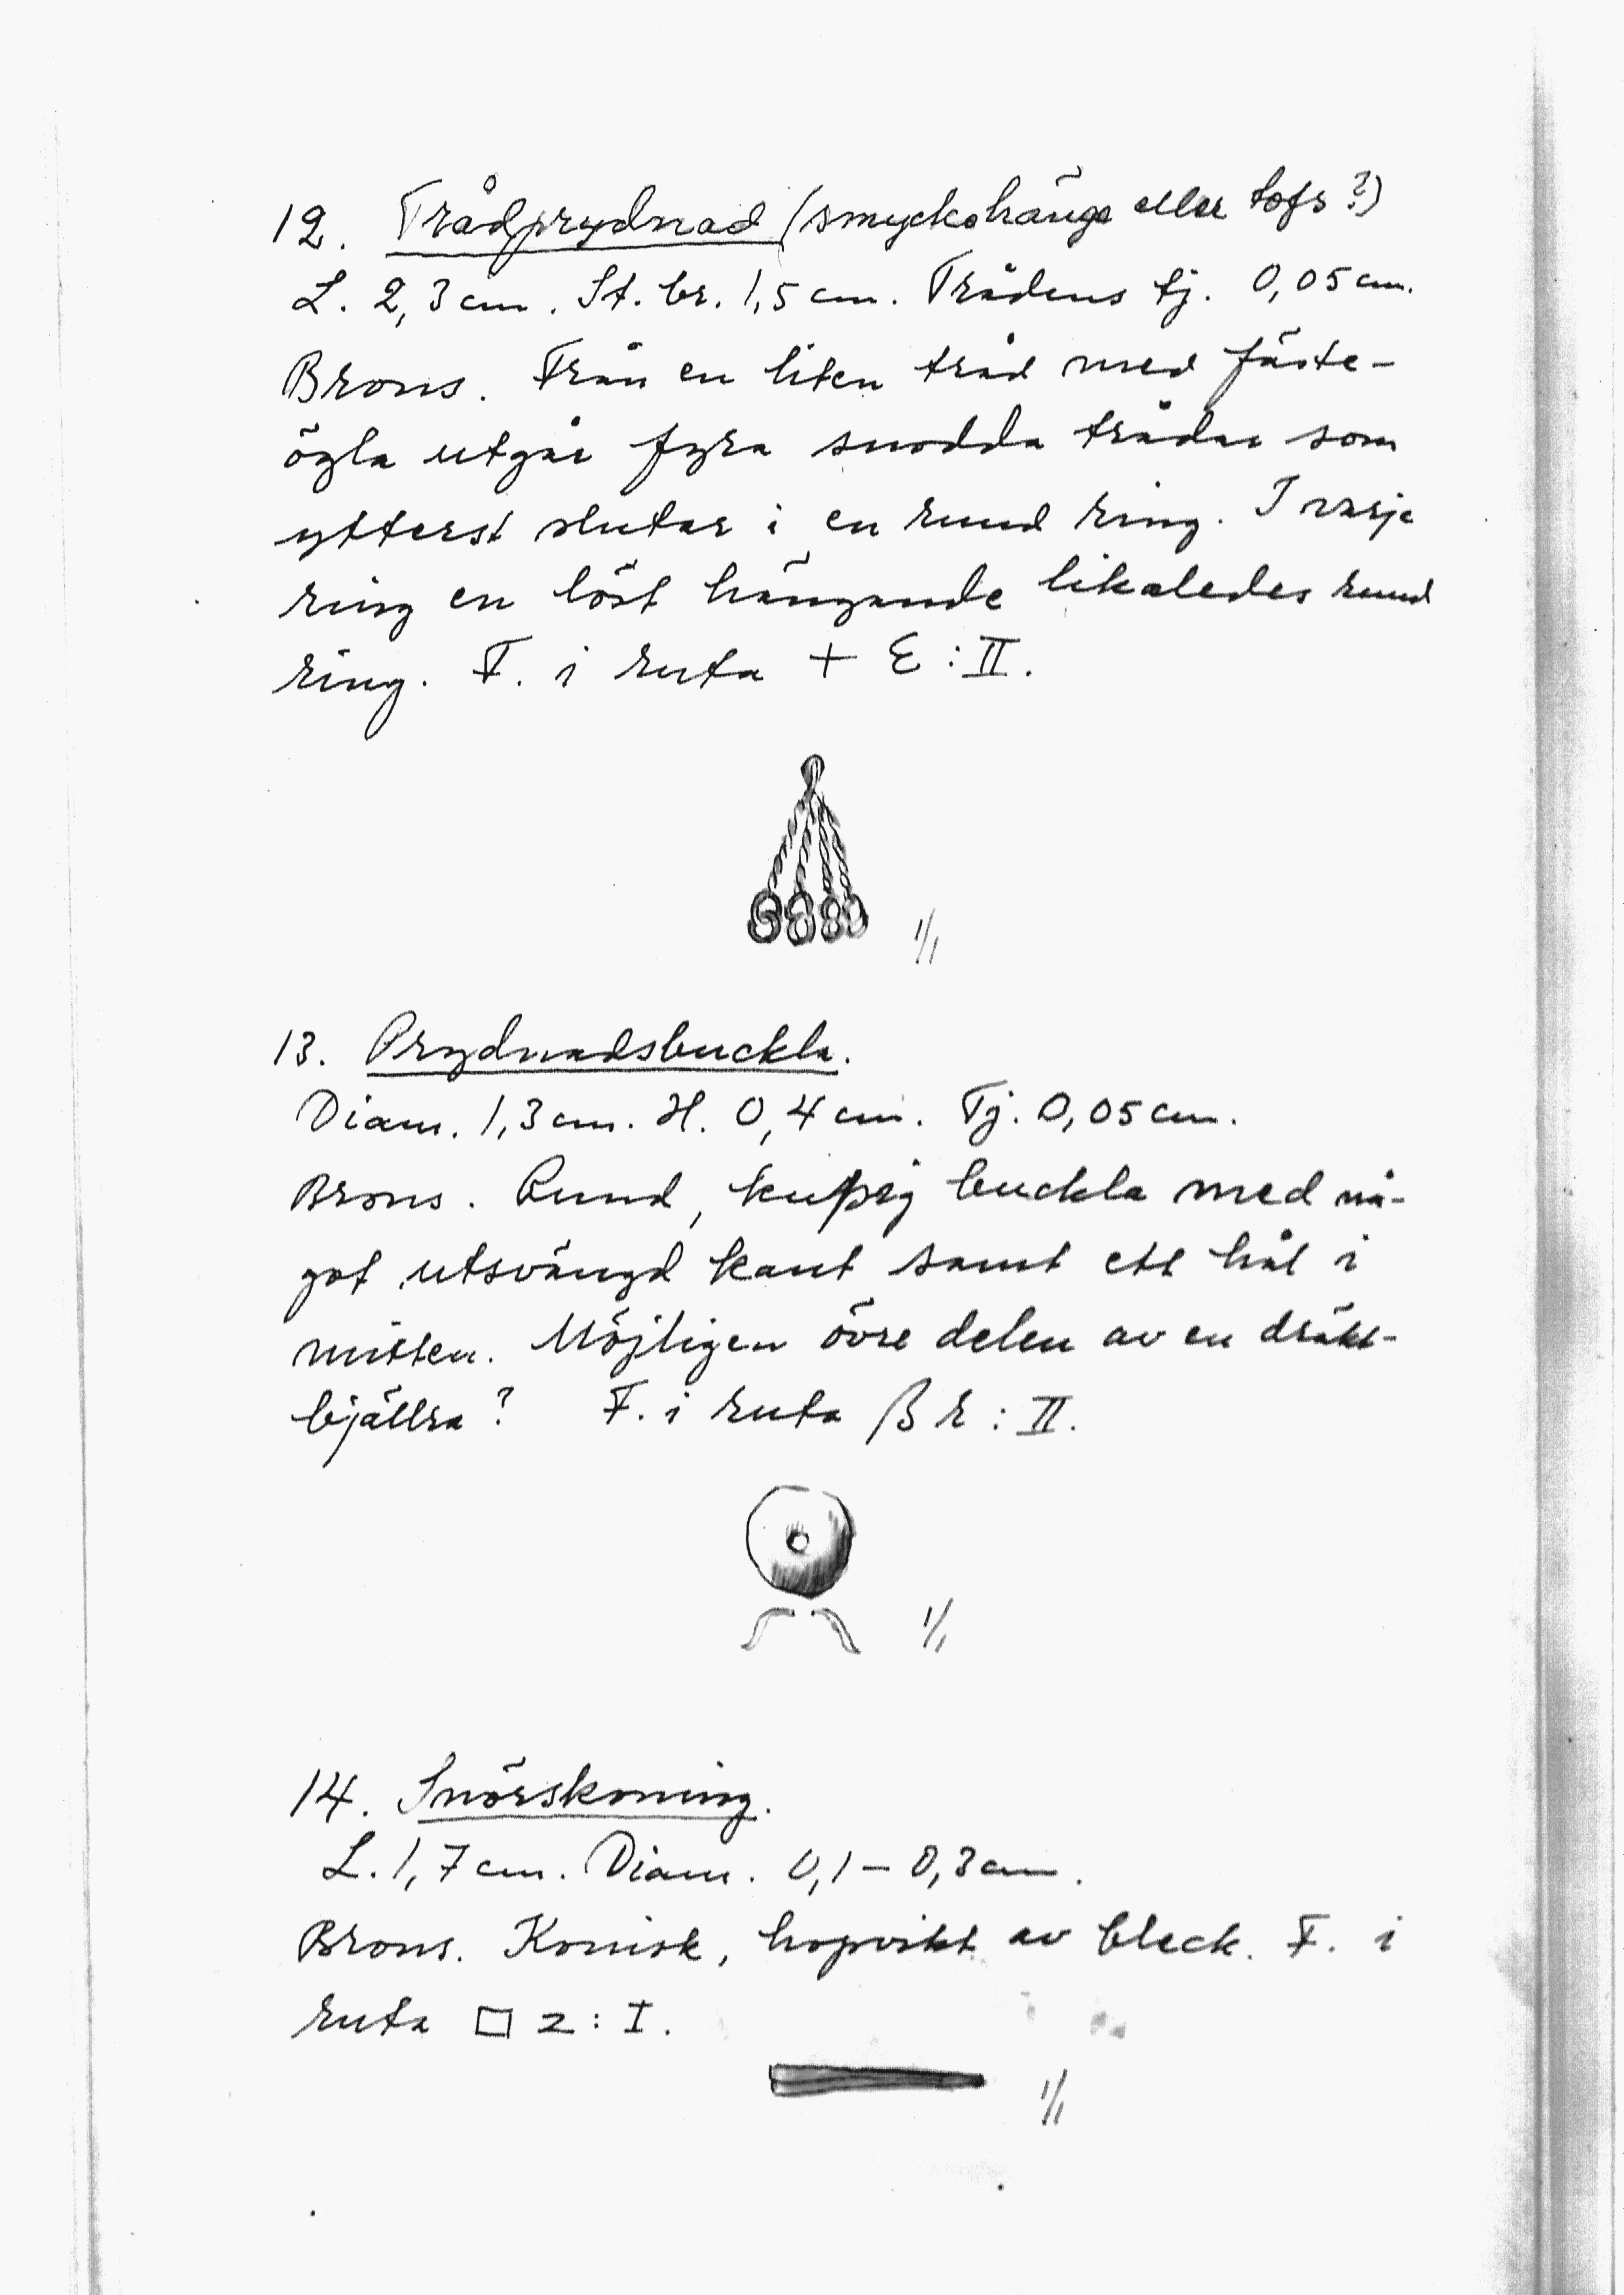 12. Trådprydnad (smyckehänge eller tofs?)
L. 2,3 cm. St. br. 1,5 cm. Trådens tj. 0,05 cm.
Brons. Från en liten tråd med fäste-
ögla utgår fyra snodda trådar som
ytterst slutar i en rund ring. I varje
ring en löst hängande likaledes rund
ring. F. i ruta + E : II.
1/1
13. Prydnadsbuckla.
Diam. 1,3 cm. H. 0,4 cm. Tj. 0,05 cm.
Brons. Rund, kupig buckla med nå-
got utsvängd kant samt ett hål i
mitten. Möjligen övre delen av en dräkt-
bjällra? F. i ruta β : II.
1/1
14. Snörskoning.
L. 1,7 cm. Diam. 0,1 – 0,3 cm.
Brons. Konisk, hopvikt av bleck. F. i
ruta □ 2 : I.
1/1